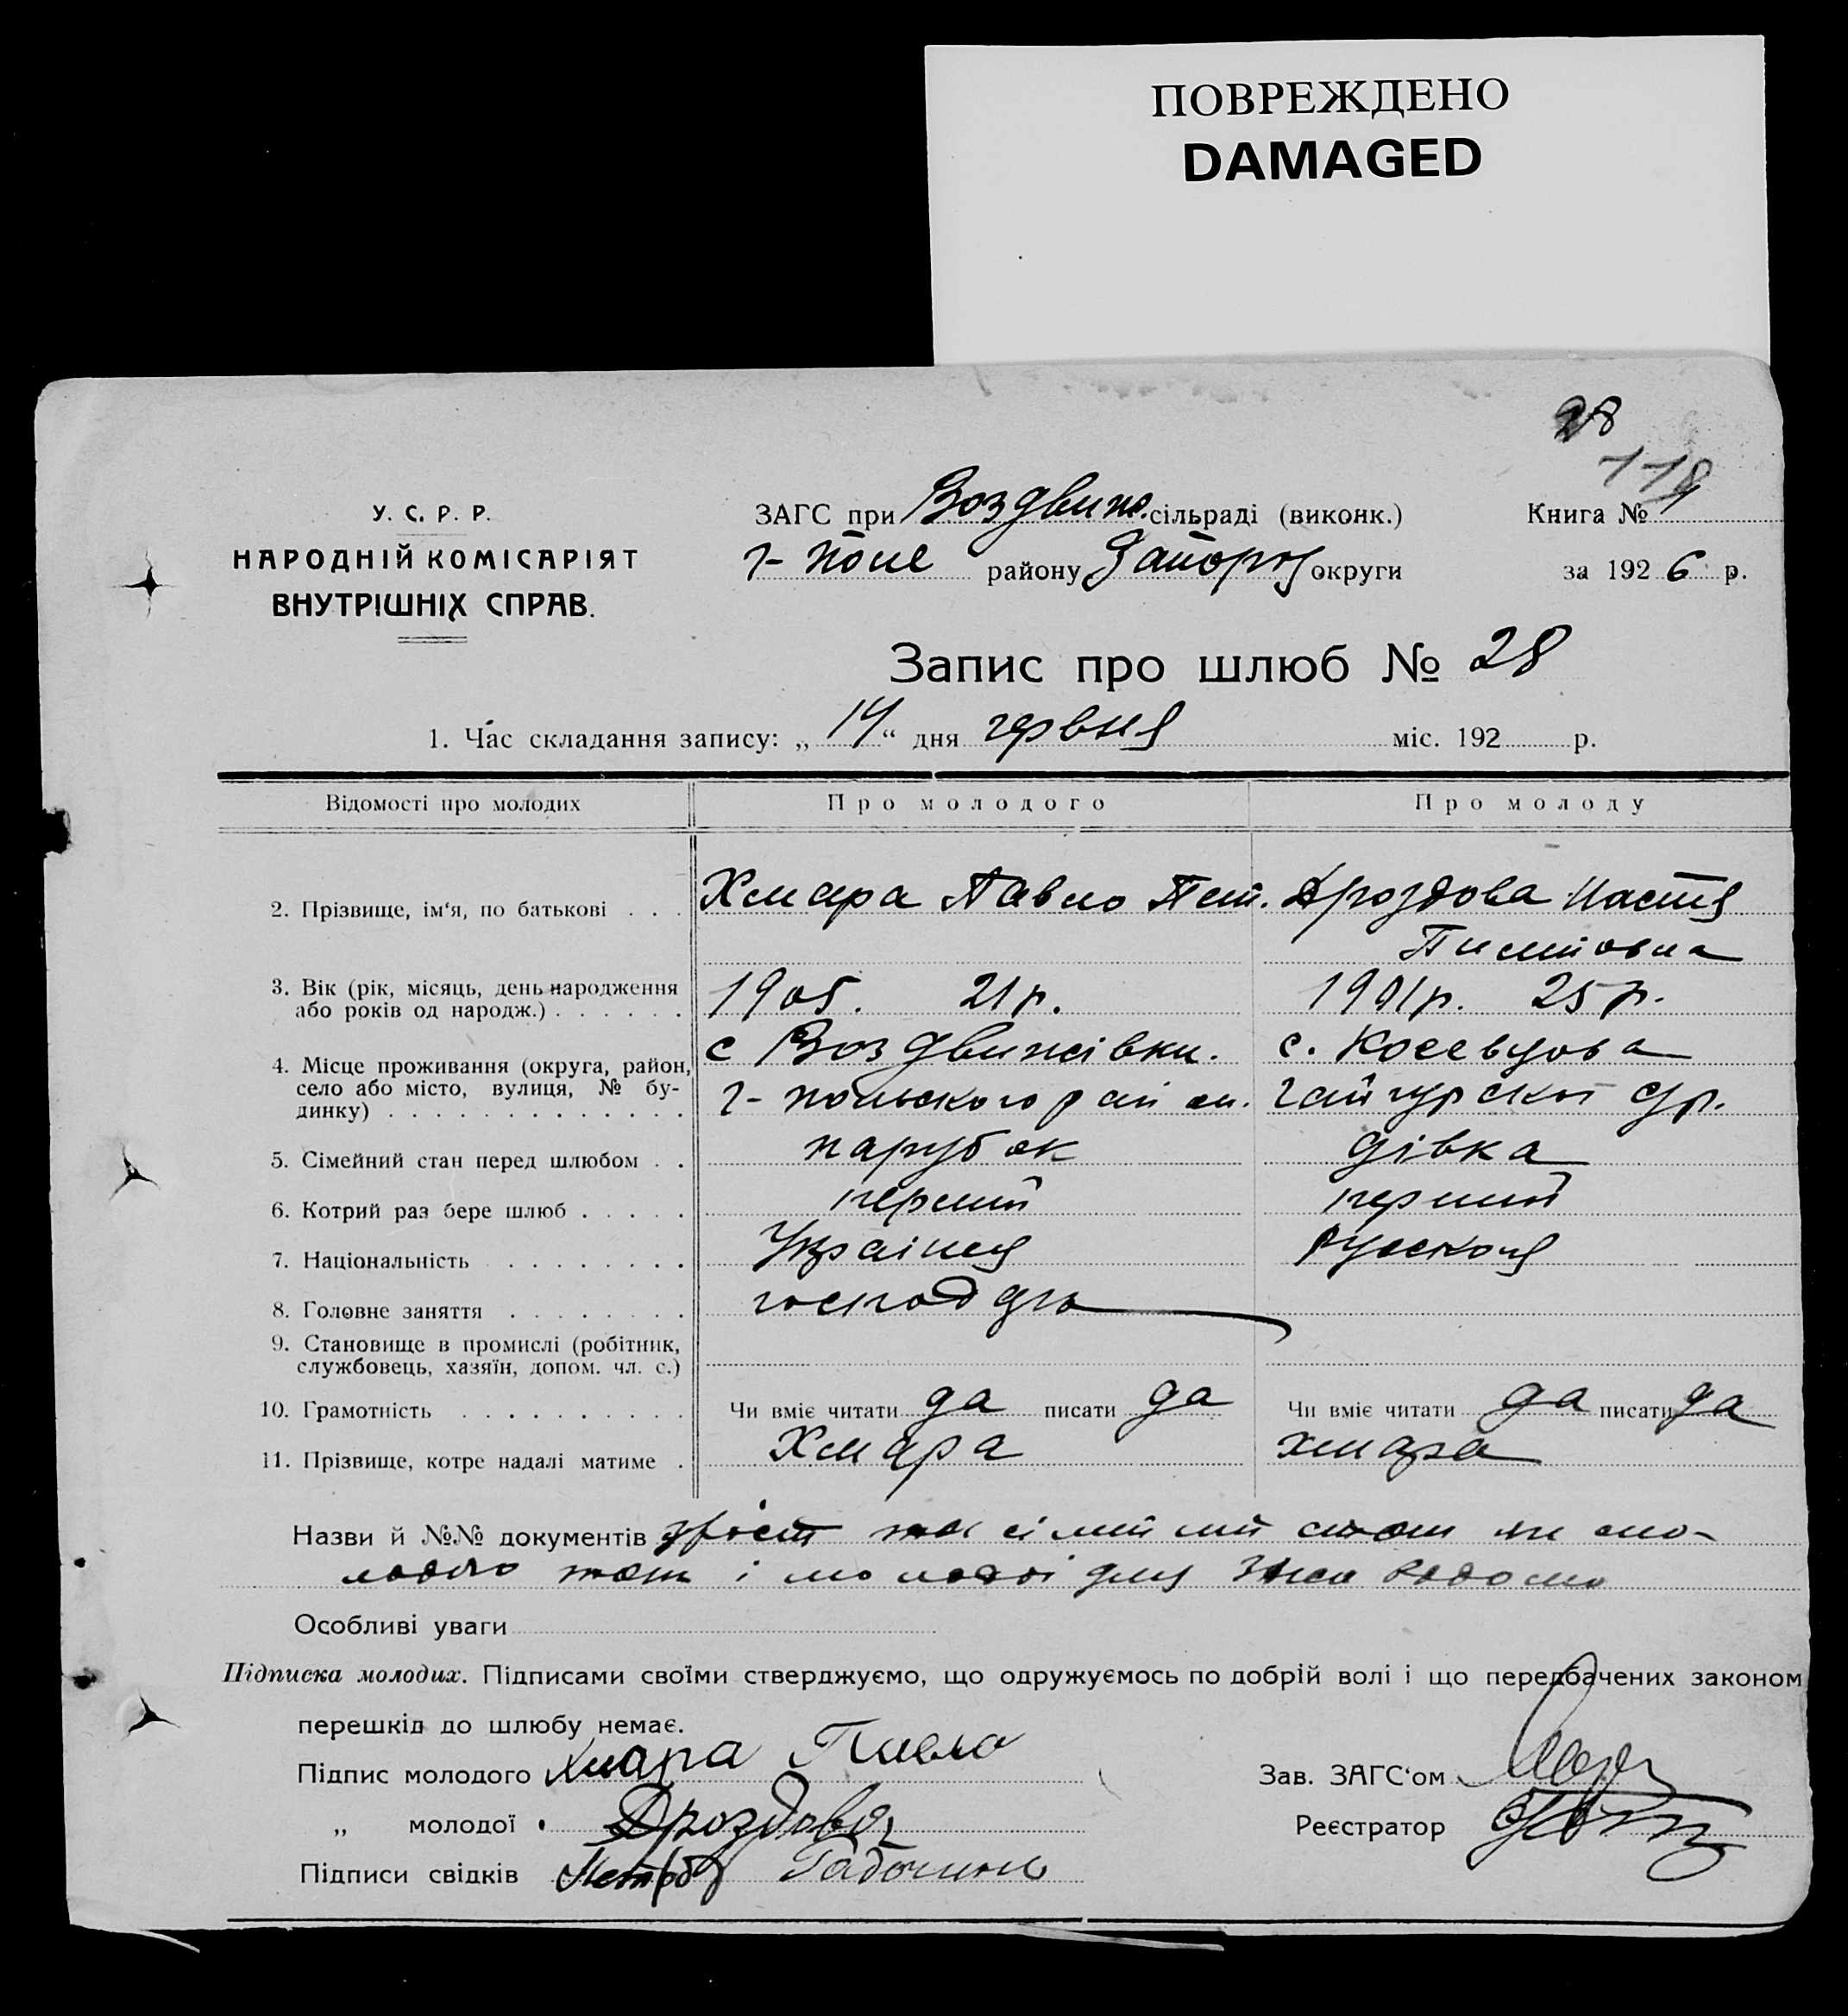 ПОВРЕЖДЕНО
DAMAGED
28
118
У. С. Р. Р.
НАРОДНІЙ КОМІСАРІЯТ
ВНУТРІШНІХ СПРАВ.
ЗАГС при Воздвиж. сільраді (виконк.)
Книга № 1
г- поле району Запорож округи
за 1926 р.
Запис про шлюб № 28
1. Час складання запису: „14“ дня червня міс. 192 р.
Відомості про молодих Про молодого Про молоду
2. Прізвище, ім‘я, по батькові . . . Хмара Павло Пет. Дроздова Настя
Пилиповна
3. Вік (рік, місяць, день народження
або років од народж.) . . . . . . 1905. 21 р. 1901р. 25 р.
4. Місце проживання (округа, район,
село або місто, вулиця, № бу-
динку) . . . . . . . . . . . . . с Воздвижівки. с.
г- польского район. гайчурскоі ср.
5. Сімейний стан перед шлюбом . . парубок дівка
6. Котрий раз бере шлюб . . . . . перший перший
7. Національність . . . . . . . . . Украінец руская
8. Головне заняття . . . . . . . .
9. Становище в промислі (робітник,
службовець, хазяїн, допом. чл. с.)
10. Грамотність . . . . . . . . . . Чи вміє читати да писати да Чи вміє читати да писати да
11. Прізвище, котре надалі матиме . Хмара хмара
Назви й №№ документів зріст та сімейний стан як мо-
лодого так і молодоі для
Особливі уваги
Підписка молодих. Підписами своїми стверджуємо, що одружуємось по добрій волі і що передбачених законом
перешкід до шлюбу немає.
Підпис молодого Хмара Павло
Зав. ЗАГС‘ом
„ молодої Дроздова
Реєстратор
Підписи свідків